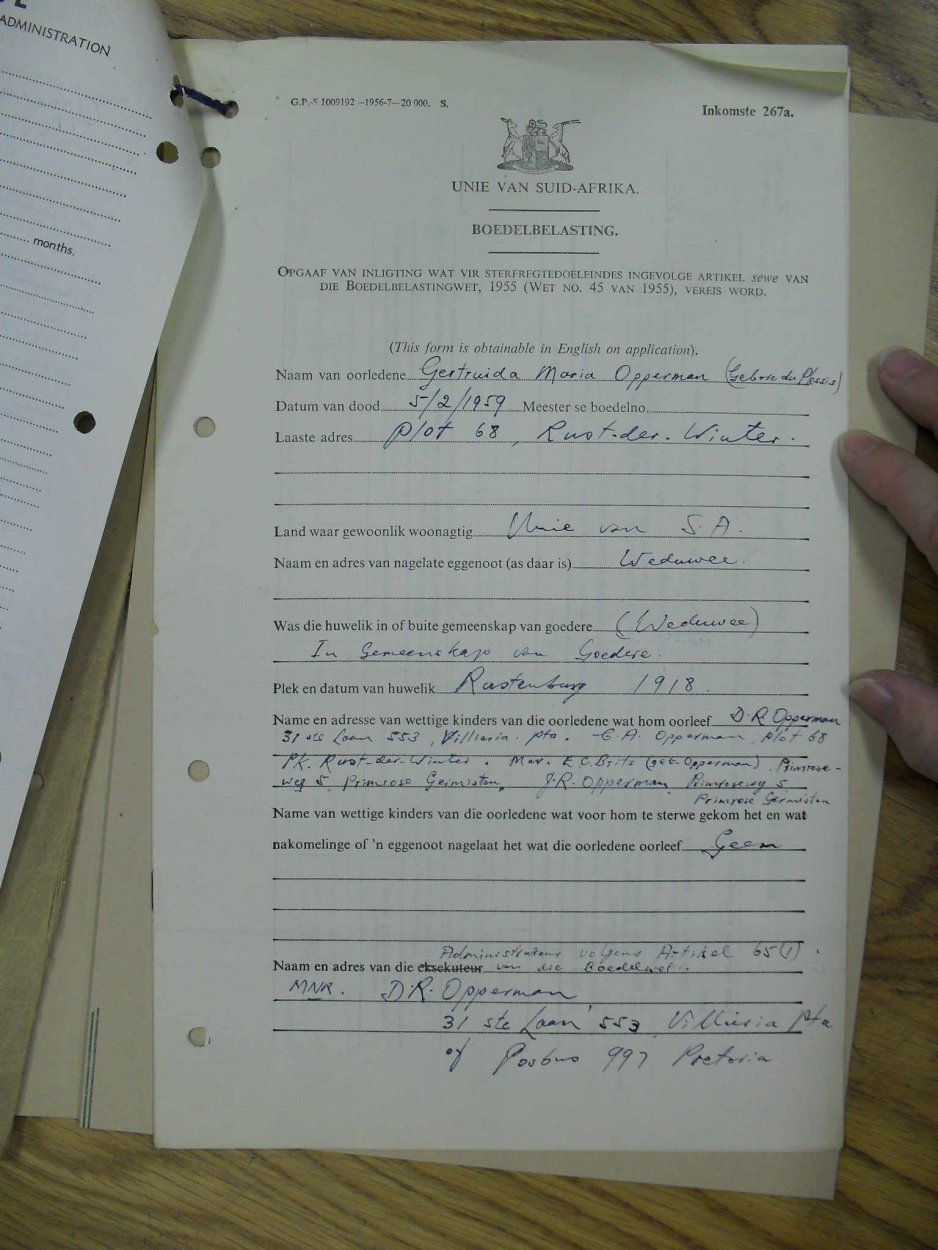 ADMINISTRATION
months.
G.P.-S 1009192 —1956-7—20 000. S.
Inkomste 267a.
UNIE VAN SUID-AFRIKA.
BOEDELBELASTING.
OPGAAF VAN INLIGTING WAT VIR STERFREGTEDOELEINDES INGEVOLGE ARTIKEL sewe VAN
DIE BOEDELBELASTINGWET, 1955 (WET NO. 45 VAN 1955), VEREIS WORD.
(This form is obtainable in English on application).
Naam van oorledene Gertruida Maria Opperman (Gebore du Plessis)
Datum van dood 5/2/1959 Meester se boedelno.
Laaste adres plot 68, Rust-der-Winter.
Land waar gewoonlik woonagtig Unie van S.A.
Naam en adres van nagelate eggenoot (as daar is) Weduwee.
Was die huwelik in of buite gemeenskap van goedere (Weduwee)
In Gemeenskap van Goedere.
Plek en datum van huwelik Rustenburg 1918.
Name en adresse van wettige kinders van die oorledene wat hom oorleef D.R. Opperman
31 ste Laan 553, Villieria. pta. - G.A. Opperman, plot 68
Pk. Rust-der-Winter. Mev. E.C. Brits (geb. Opperman). Primrose-
weg 5, Primrose Germiston, J.R. Opperman Primroseweg 5
Primrose Germiston
Name van wettige kinders van die oorledene wat voor hom te sterwe gekom het en wat
nakomelinge of 'n eggenoot nagelaat het wat die oorledene oorleef Geen
Administrateur volgens Artikel 65(1).
Naam en adres van die eksekuteur van die Boedelwet.
MNR. D.R. Opperman
31 ste Laan 553, Villieria pta
of Posbus 997 Pretoria